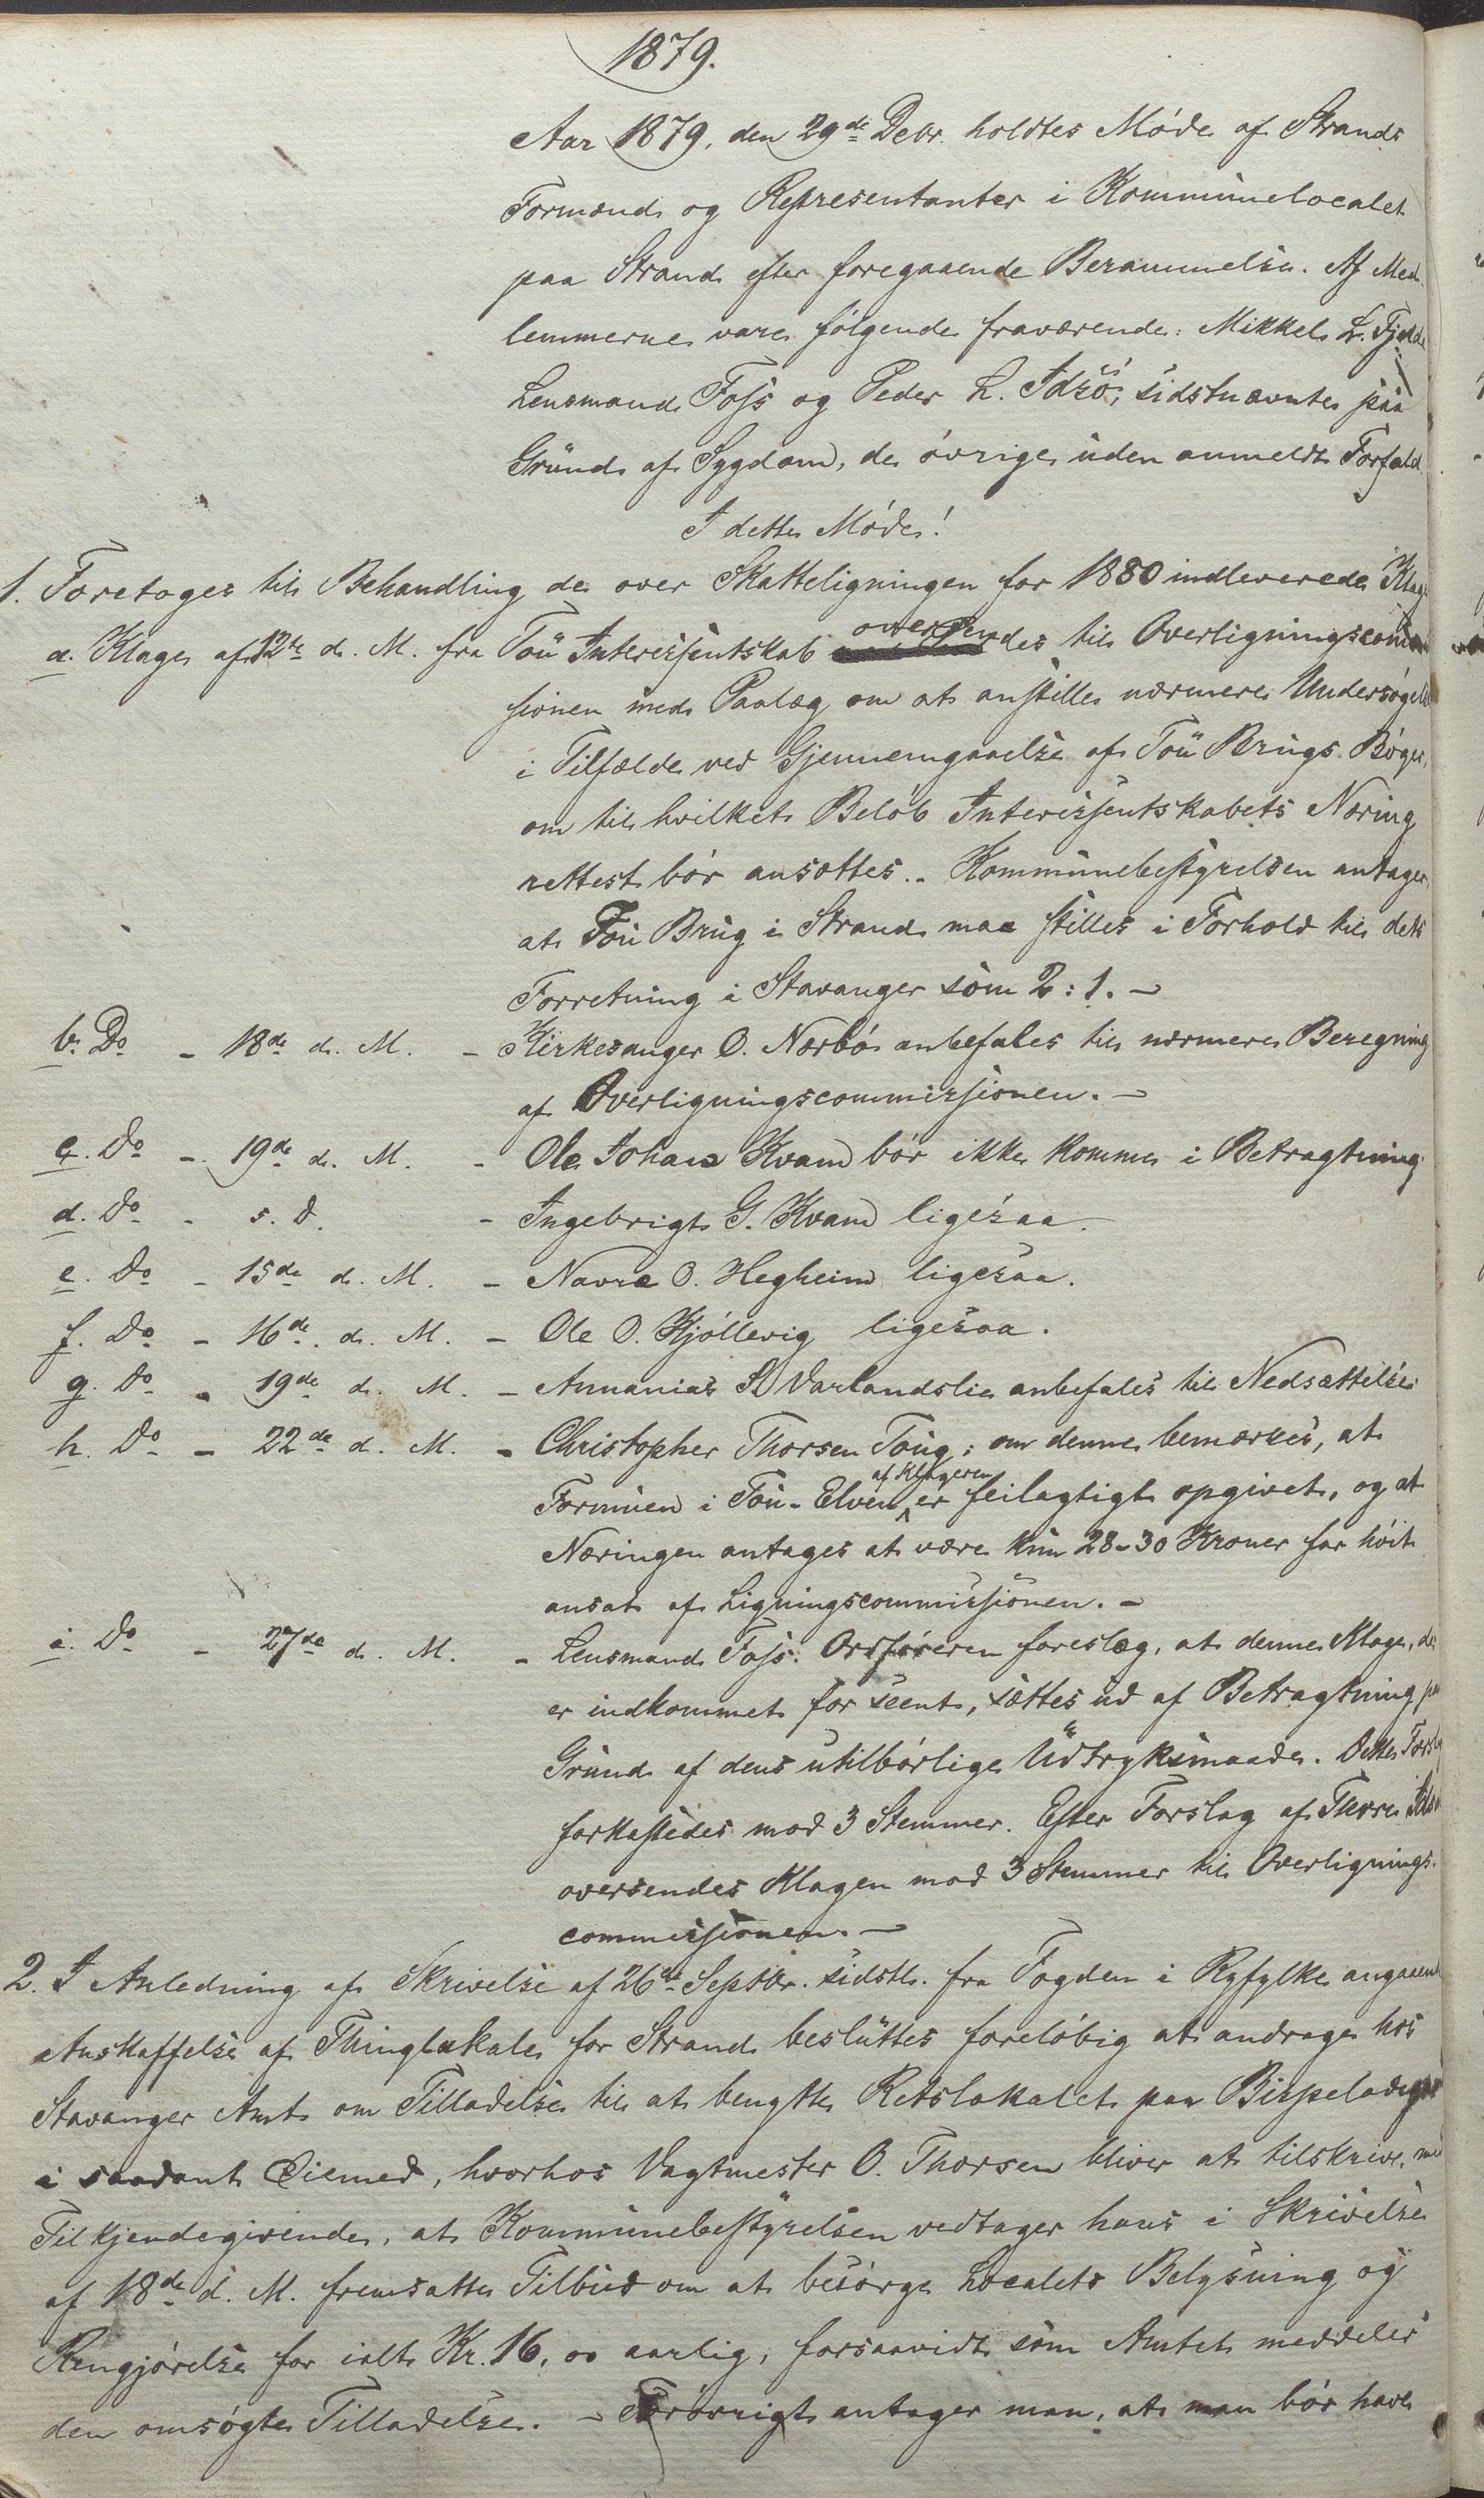 1879.
Aar 1879, den 29de Debr. holdtes Møde af Strands
Formænd og Repræsentanter i Kommunelocalet
paa Strand efter foregaaende Berammelse. Af Med-
lemmerne vare følgende fraværende: Mikkel L. Fjelde
Lensmand Foss og Peder L. Idsø, sidstnævnte paa
Grund af Sygdom, de øvrige uden anmeldt Forfald.
I dette Møde!
1. Foretoges til Behandling de over Skatteligningen for 1880 indleverede Klager
a. Klage af 12te d. M. fra Tou Interessentskab oversendes til Overligningscommis
sionen med Paalæg om at anstille nærmere Undersøgelse
i Tilfælde ved Gjennemgaaelse af Tou Brugs Bøger,
om til hvilket Beløb Interessentskabets Næring
rettest bør ansættes. - Kommunebestyrelsen antager,
at Tou Brug i Strand maa stilles i Forhold til dets
Forretning i Stavanger som 2:1. -
b. Do - 18de d. M. - Kirkesanger O. Nærbø anbefales til nærmere Beregning
af Overligningscommissionen. -
c. Do - 19de d. M. - Ole Johan Kvam bør ikke komme i Betragtning.
d. Do - s. D. - Ingebrigt G. Kvam ligesaa.
e. Do - 15de d. M. - Navre O. Hegheim ligesaa.
f. Do - 16de d. M. - Ole O. Kjøllevig ligesaa.
g. Do - 19de d. M. - Annanias S. Varlandslie anbefales til Nedsættelse
h. Do - 22de d. M. - Christopher Thorsen Toug; om denne bemærkes, at
Formuen i Tou-Elven af Klageren er feilagtigt opgivet, og at
Næringen antages at være kun 28-30 Kroner for høit
ansat af Ligningscommissionen. -
i. Do - 27de d. M. - Lensmand Foss. Ordføreren foreslog, at denne Klage, der
er indkommet for seent, sættes ud af Betragtning paa
Grund af dens utilbørlige Udtryksmaade. Dette Forslag
forkastedes mod 3 Stemmer. Efter Forslag af Thore Idsø
oversendes Klagen mod 3 Stemmer til Overlignings-
commissionen. -
2. I Anledning af Skrivelse af 26de Septbr. sidstl. fra Fogden i Ryfylke angaaende
Anskaffelse af Thinglokale for Strand besluttes foreløbig at andrage hos
Stavanger Amt om Tilladelse til at benytte Retslokalet paa Bispeladegaard
i saadant Øiemed, hvorhos Vagtmester O. Thorsen bliver at tilskrive, med
Tilkjendegivende, at Kommunebestyrelsen vedtager hans i Skrivelse
af 18de d. M. fremsatte Tilbud om at besørge Localets Belysning og
Rengjørelse for ialt Kr. 16,00 aarlig, forsaavidt som Amtet meddeler
den omsøgte Tilladelse. - Forøvrigt antager man, at man bør have